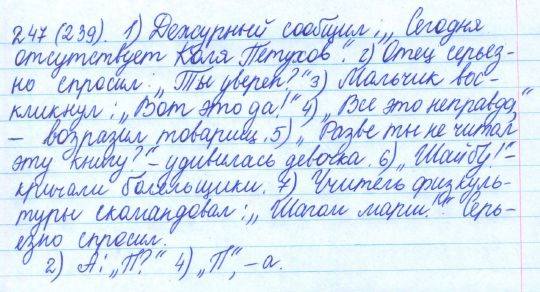 247 (239). 1) Дежурный сообщил: „Сегодня
отсутствует Коля Петухов“. 2) Отец серьез-
но спросил: „Ты уверен?“ 3) Мальчик вос-
кликнул: „Вот это да!“ 4) „Все это неправда,“
– возразил товарищ. 5) „Разве ты не читал
эту книгу?“ – удивилась девочка. 6) „Шайбу!“ –
кричали болельщики. 7) Учитель физкуль-
туры скомандовал: „Шагом марш!“ Серь-
езно спросил.
2) А: „П?“ 4) „П“, – а.